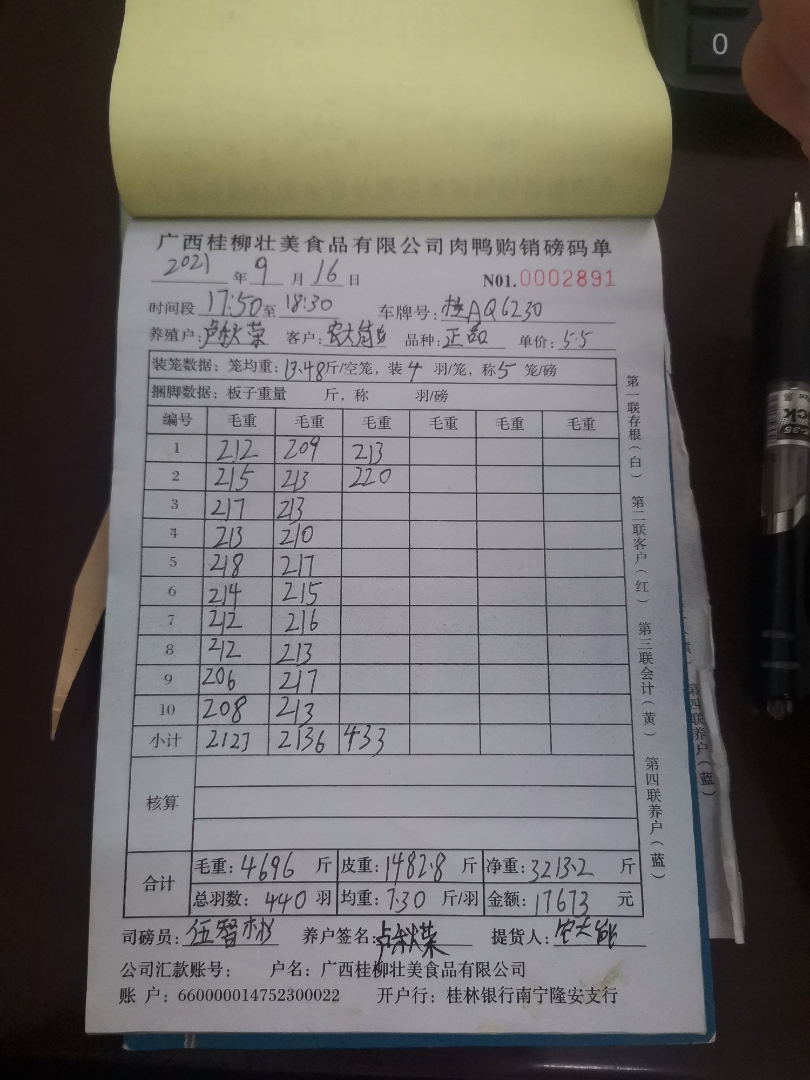 0
广西桂柳壮美食品有限公司肉鸭购销磅码单
2021 年 9 月 16 日 N01.0002891
时间段 17:50 至 18:30 车牌号: 桂AQ6230
养殖户: 卢秋荣 客户: 农大 品种: 正品 单价: 5.5
装笼数据: 笼均重: 13.48 斤/空笼, 装 4 羽/笼, 称 5 笼/磅
捆脚数据: 板子重量 斤, 称 羽/磅
编号 毛重 毛重 毛重 毛重 毛重 毛重
1 212 209 213
2 215 213 220
3 217 213
4 213 210
5 218 217
6 214 215
7 212 216
8 212 213
9 206 217
10 208 213
小计 2127 2136 433
核算
合计
毛重: 4696 斤 皮重: 1482.8 斤 净重: 3213.2 斤
总羽数: 440 羽 均重: 7.30 斤/羽 金额: 17673 元
司磅员: 伍智彬 养户签名: 卢秋荣 提货人: 农大
公司汇款账号: 户名: 广西桂柳壮美食品有限公司
账 户: 660000014752300022 开户行: 桂林银行南宁隆安支行
第一联存根(白) 第二联客户(红) 第三联会计(黄) 第四联养户(蓝)
第四联养户(蓝)